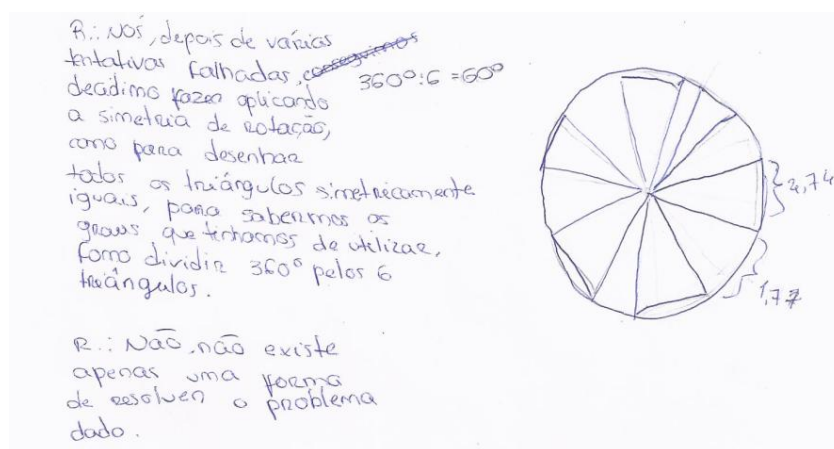 R.: Nós, depois de várias
tentativas falhadas, conseguimos
decidimo fazer aplicando
a simetria de rotação,
como para desenhar
todos os triângulos simetricamente
iguais, para sabermos os
graus que tinhamos de utilizar,
fomo dividir 360° pelos 6
triângulos.
360° : 6 = 60°
2,74
1,77
R.: Não, não existe
apenas uma forma
de resolver o problema
dado.